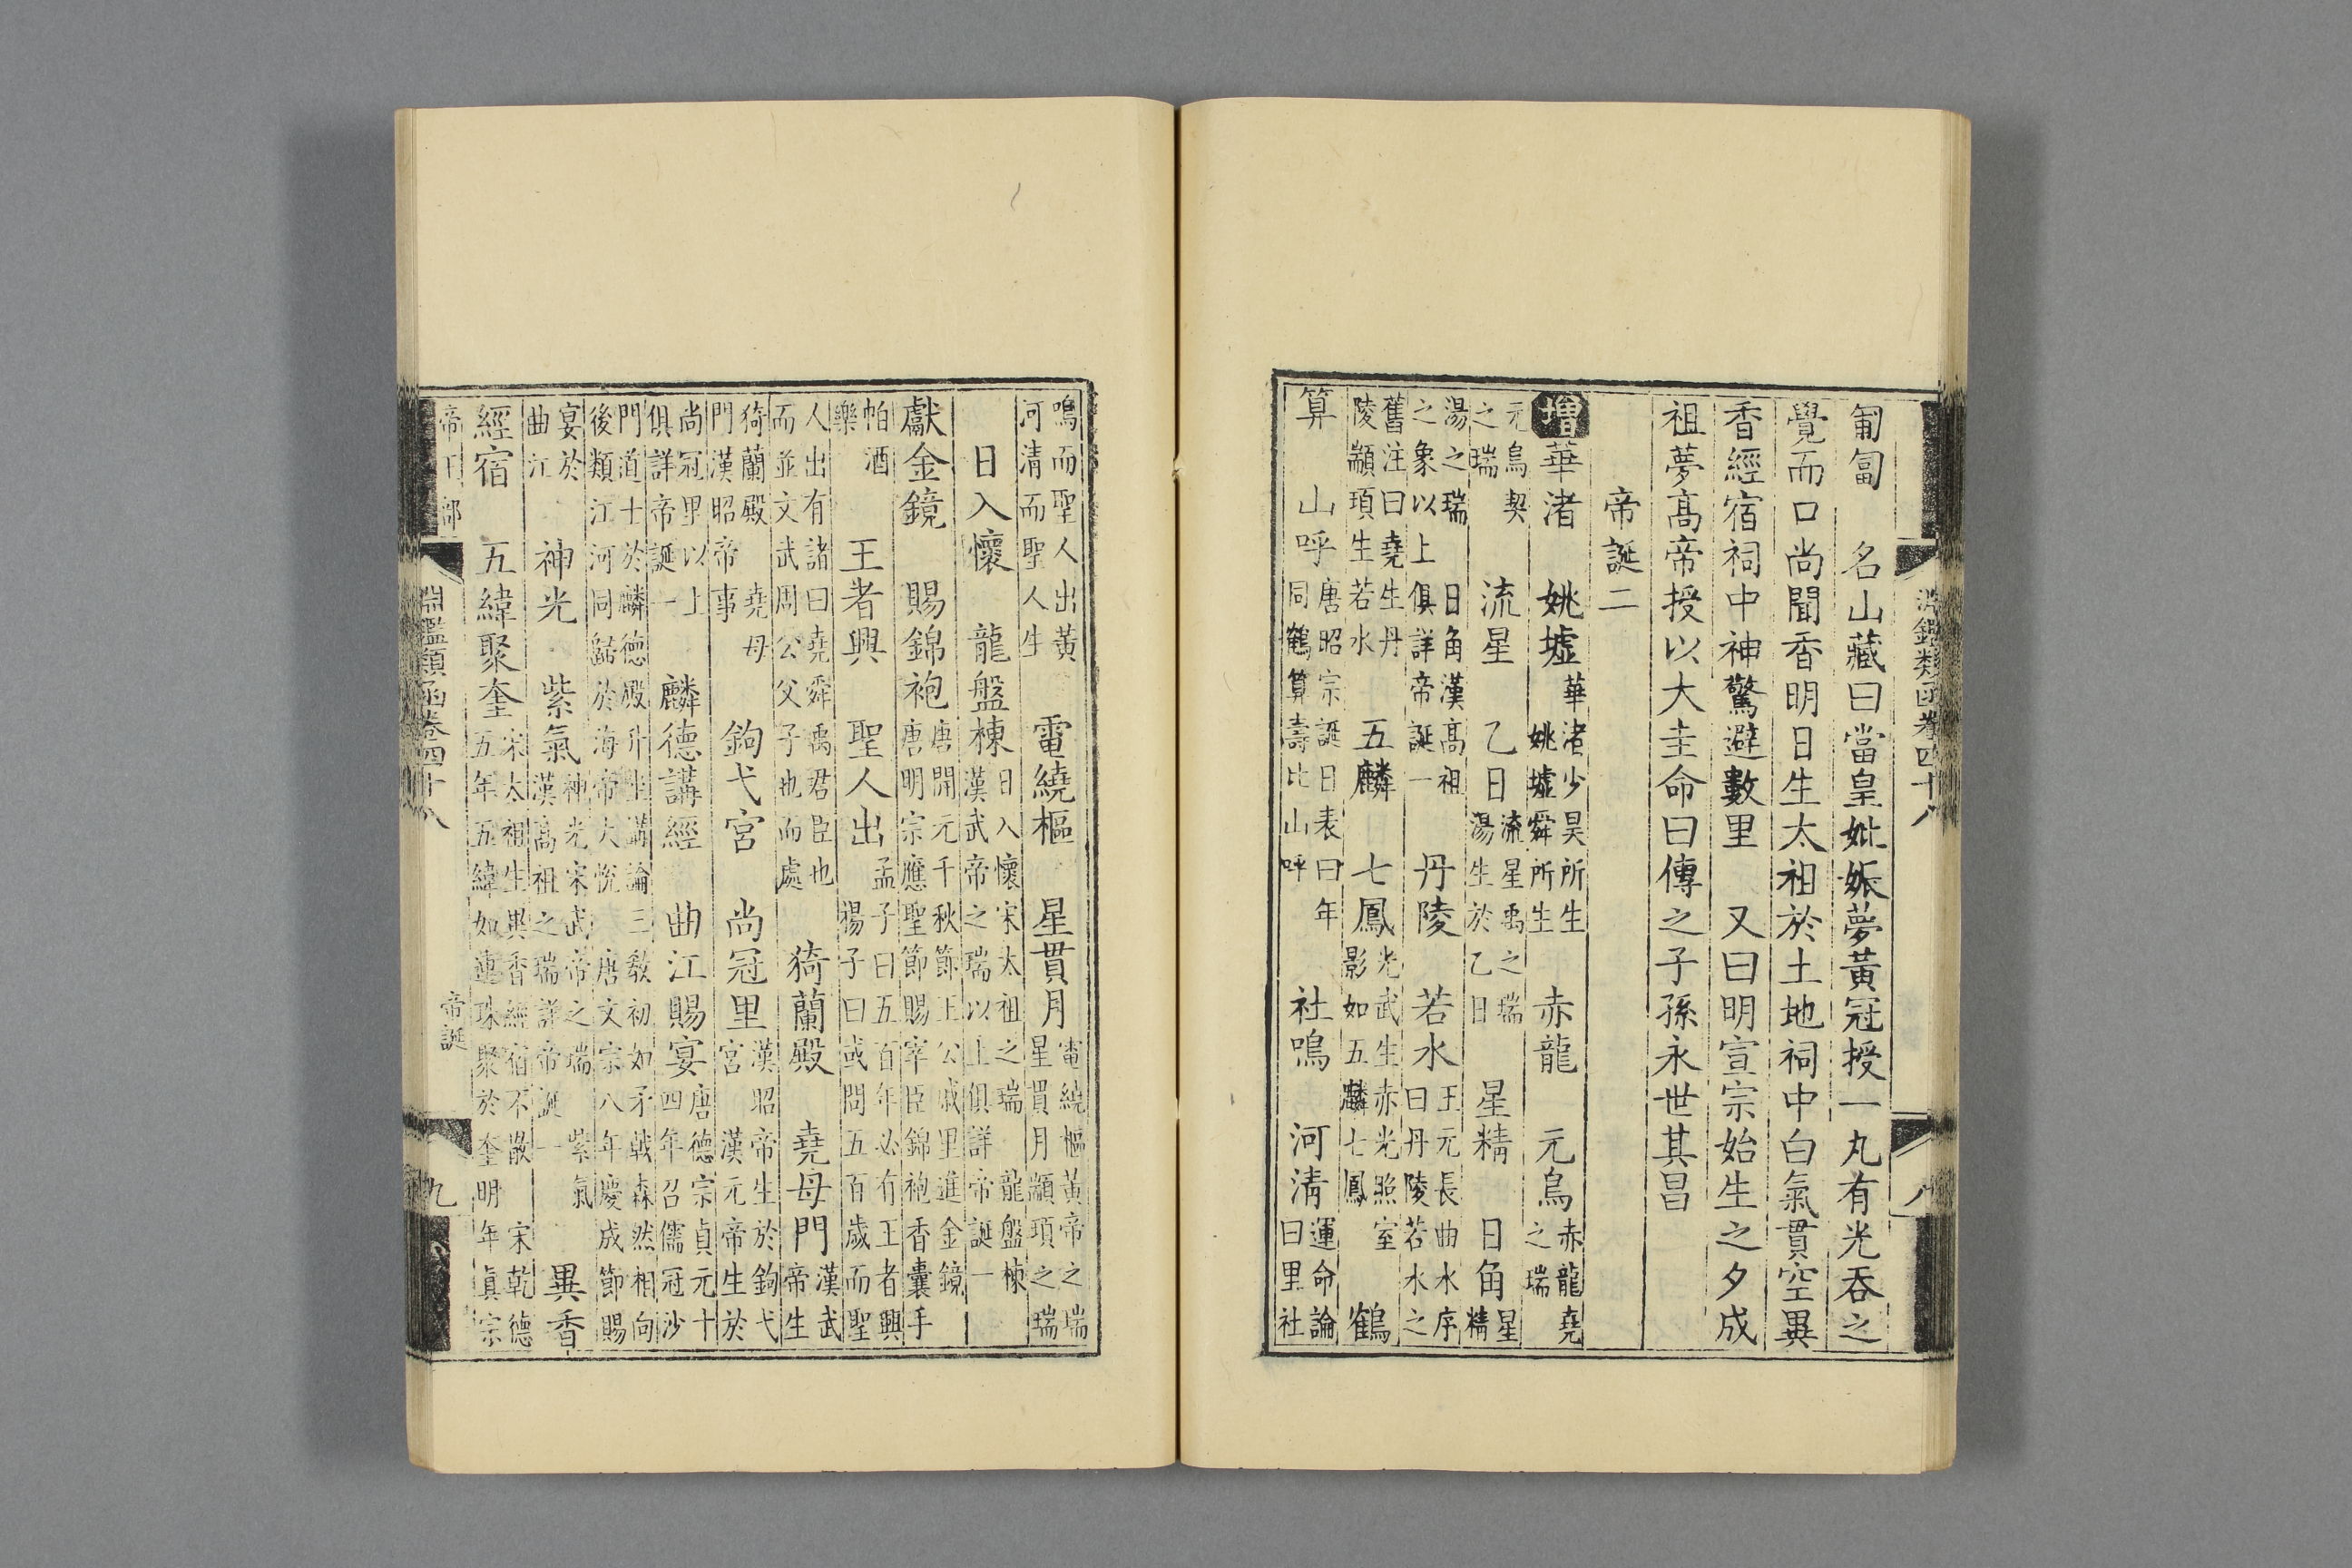 淵鑑類函卷四十八 八
匍匐 名山藏曰當皇妣娠夢黃冠授一丸有光吞之
覺而口尚聞香明日生太祖於土地祠中白氣貫空異
香經宿祠中神驚避數里 又曰明宣宗始生之夕成
祖夢髙帝授以大圭命曰傳之子孫永世其昌
帝誕二
增華渚 姚墟 華渚少昊所生 姚墟舜所生 赤龍 元鳥 赤龍堯 之瑞
元鳥契 之瑞 流星 乙日 流星禹之瑞 湯生於乙日 星精 日角 星 精
湯之瑞 日角漢髙祖 之象以上俱詳帝誕一 丹陵 若水 王元長曲水序 曰丹陵若水之
舊注曰堯生丹 陵顓頊生若水 五麟 七鳳 光武生赤光照室 影如五麟七鳳 鶴
算 山呼 唐昭宗誕日表曰年 同鶴算壽比山呼 社鳴 河清 運命論 曰里社
鳴而聖人出黃 河清而聖人生 電繞樞 星貫月 電繞樞黃帝之瑞 星貫月顓頊之瑞
日入懷 龍盤棟 日入懷宋太祖之瑞 龍盤棟 漢武帝之瑞以上俱詳帝誕一
獻金鏡 賜錦袍 唐開元千秋節王公戚里進金鏡 唐明宗應聖節賜宰臣錦袍香囊手
帕酒 樂 王者興 聖人出 孟子曰五百年必有王者興 揚子曰或問五百歲而聖
人出有諸曰堯舜禹君臣也 而並文武周公父子也而處 猗蘭殿 堯母門 漢武 帝生
猗蘭殿 堯母 門漢昭帝事 鉤弋宮 尚冠里 漢昭帝生於鉤弋 宮 漢元帝生於
尚冠里以上 俱詳帝誕一 麟德講經 曲江賜宴 唐德宗貞元十 四年召儒冠沙
門道士於麟德殿升坐講論三教初如矛戟森然相向 後類江河同歸於海帝大悅 唐文宗八年慶成節賜
宴於 曲江 神光 紫氣 神光宋武帝之瑞 紫氣 漢髙祖之瑞詳帝誕一 異香
經宿 五緯聚奎 宋太祖生異香經宿不散 宋乾德 五年五緯如連珠聚於奎明年眞宗
帝王部 淵鑑類函卷四十八 帝誕 九